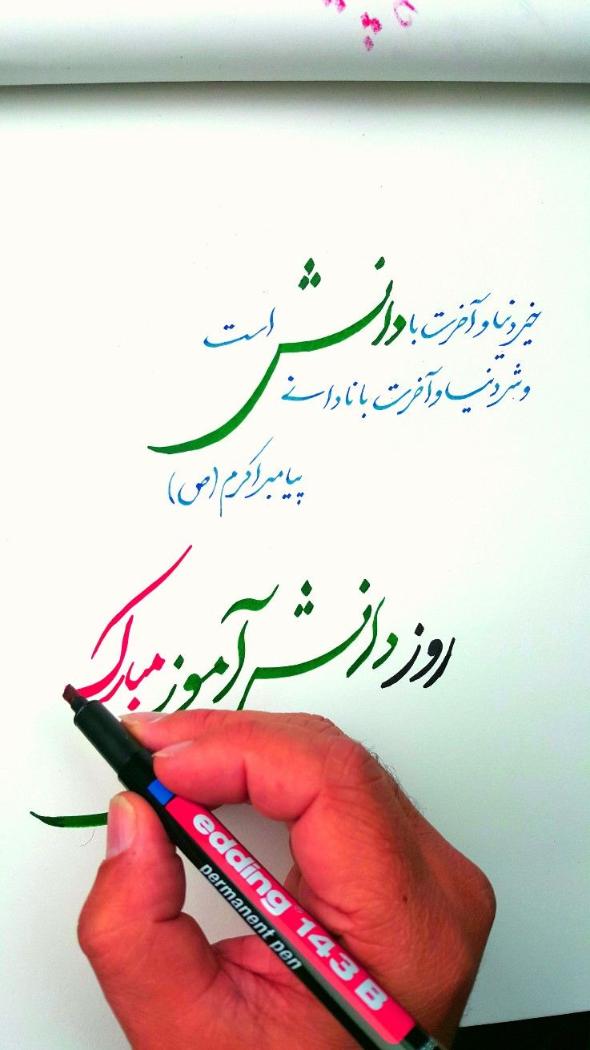 خیر دنیا و آخرت با دانش است
و شر دنیا و آخرت با نادانی
پیامبر اکرم (ص)
روز دانش آموز مبارک
edding 143 B
permanent pen